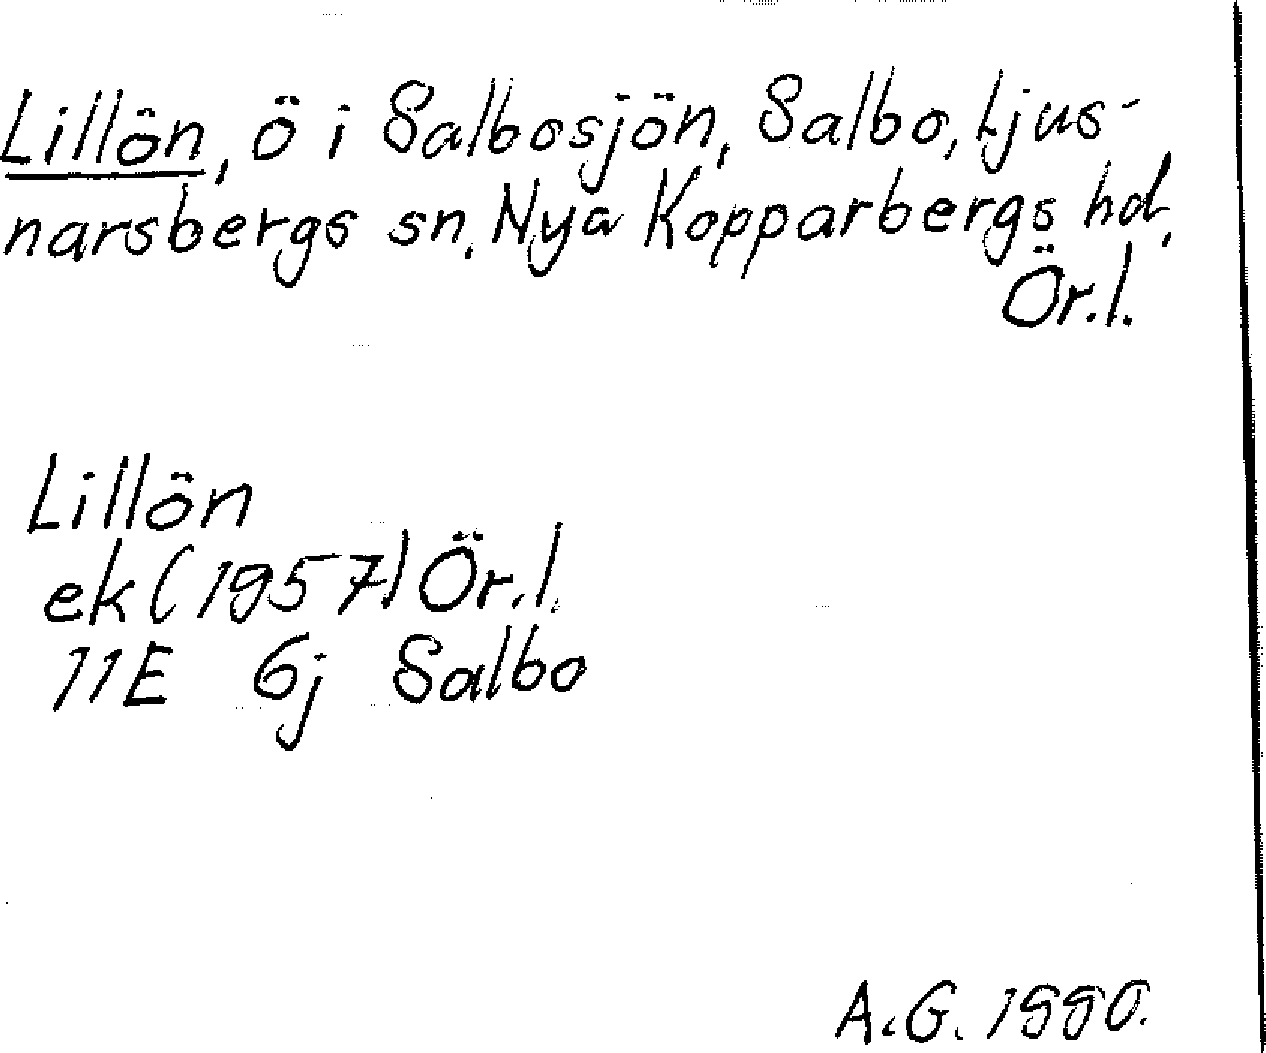 Lillön, ö i Salbosjön, Salbo, Ljus-
narsbergs sn, Nya Kopparbergs hd,
Ör.l.
Lillön
ek (1957) Ör.l.
11E 6j Salbo
A.G. 1990.